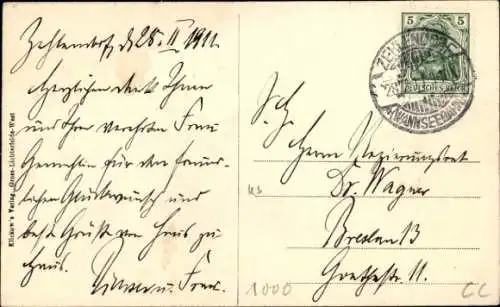 Zehlendorf, d. 28. II 1911.
Herzlichen Dank Ihnen
und Ihrer verehrten Frau
Gemahlin für den freund-
lichen Glückwunsch und
beste Grüße von Haus zu
Haus.
u. Frau.
Klinkow's Verlag, Gross-Lichterfelde-West
5 5
DEUTSCHES REICH
ZEHLENDORF
(WANNSEEBAHN)
Herrn Regierungsrat
Dr. Wagner
Breslau 13
Goethestr. 11.
1000
CC